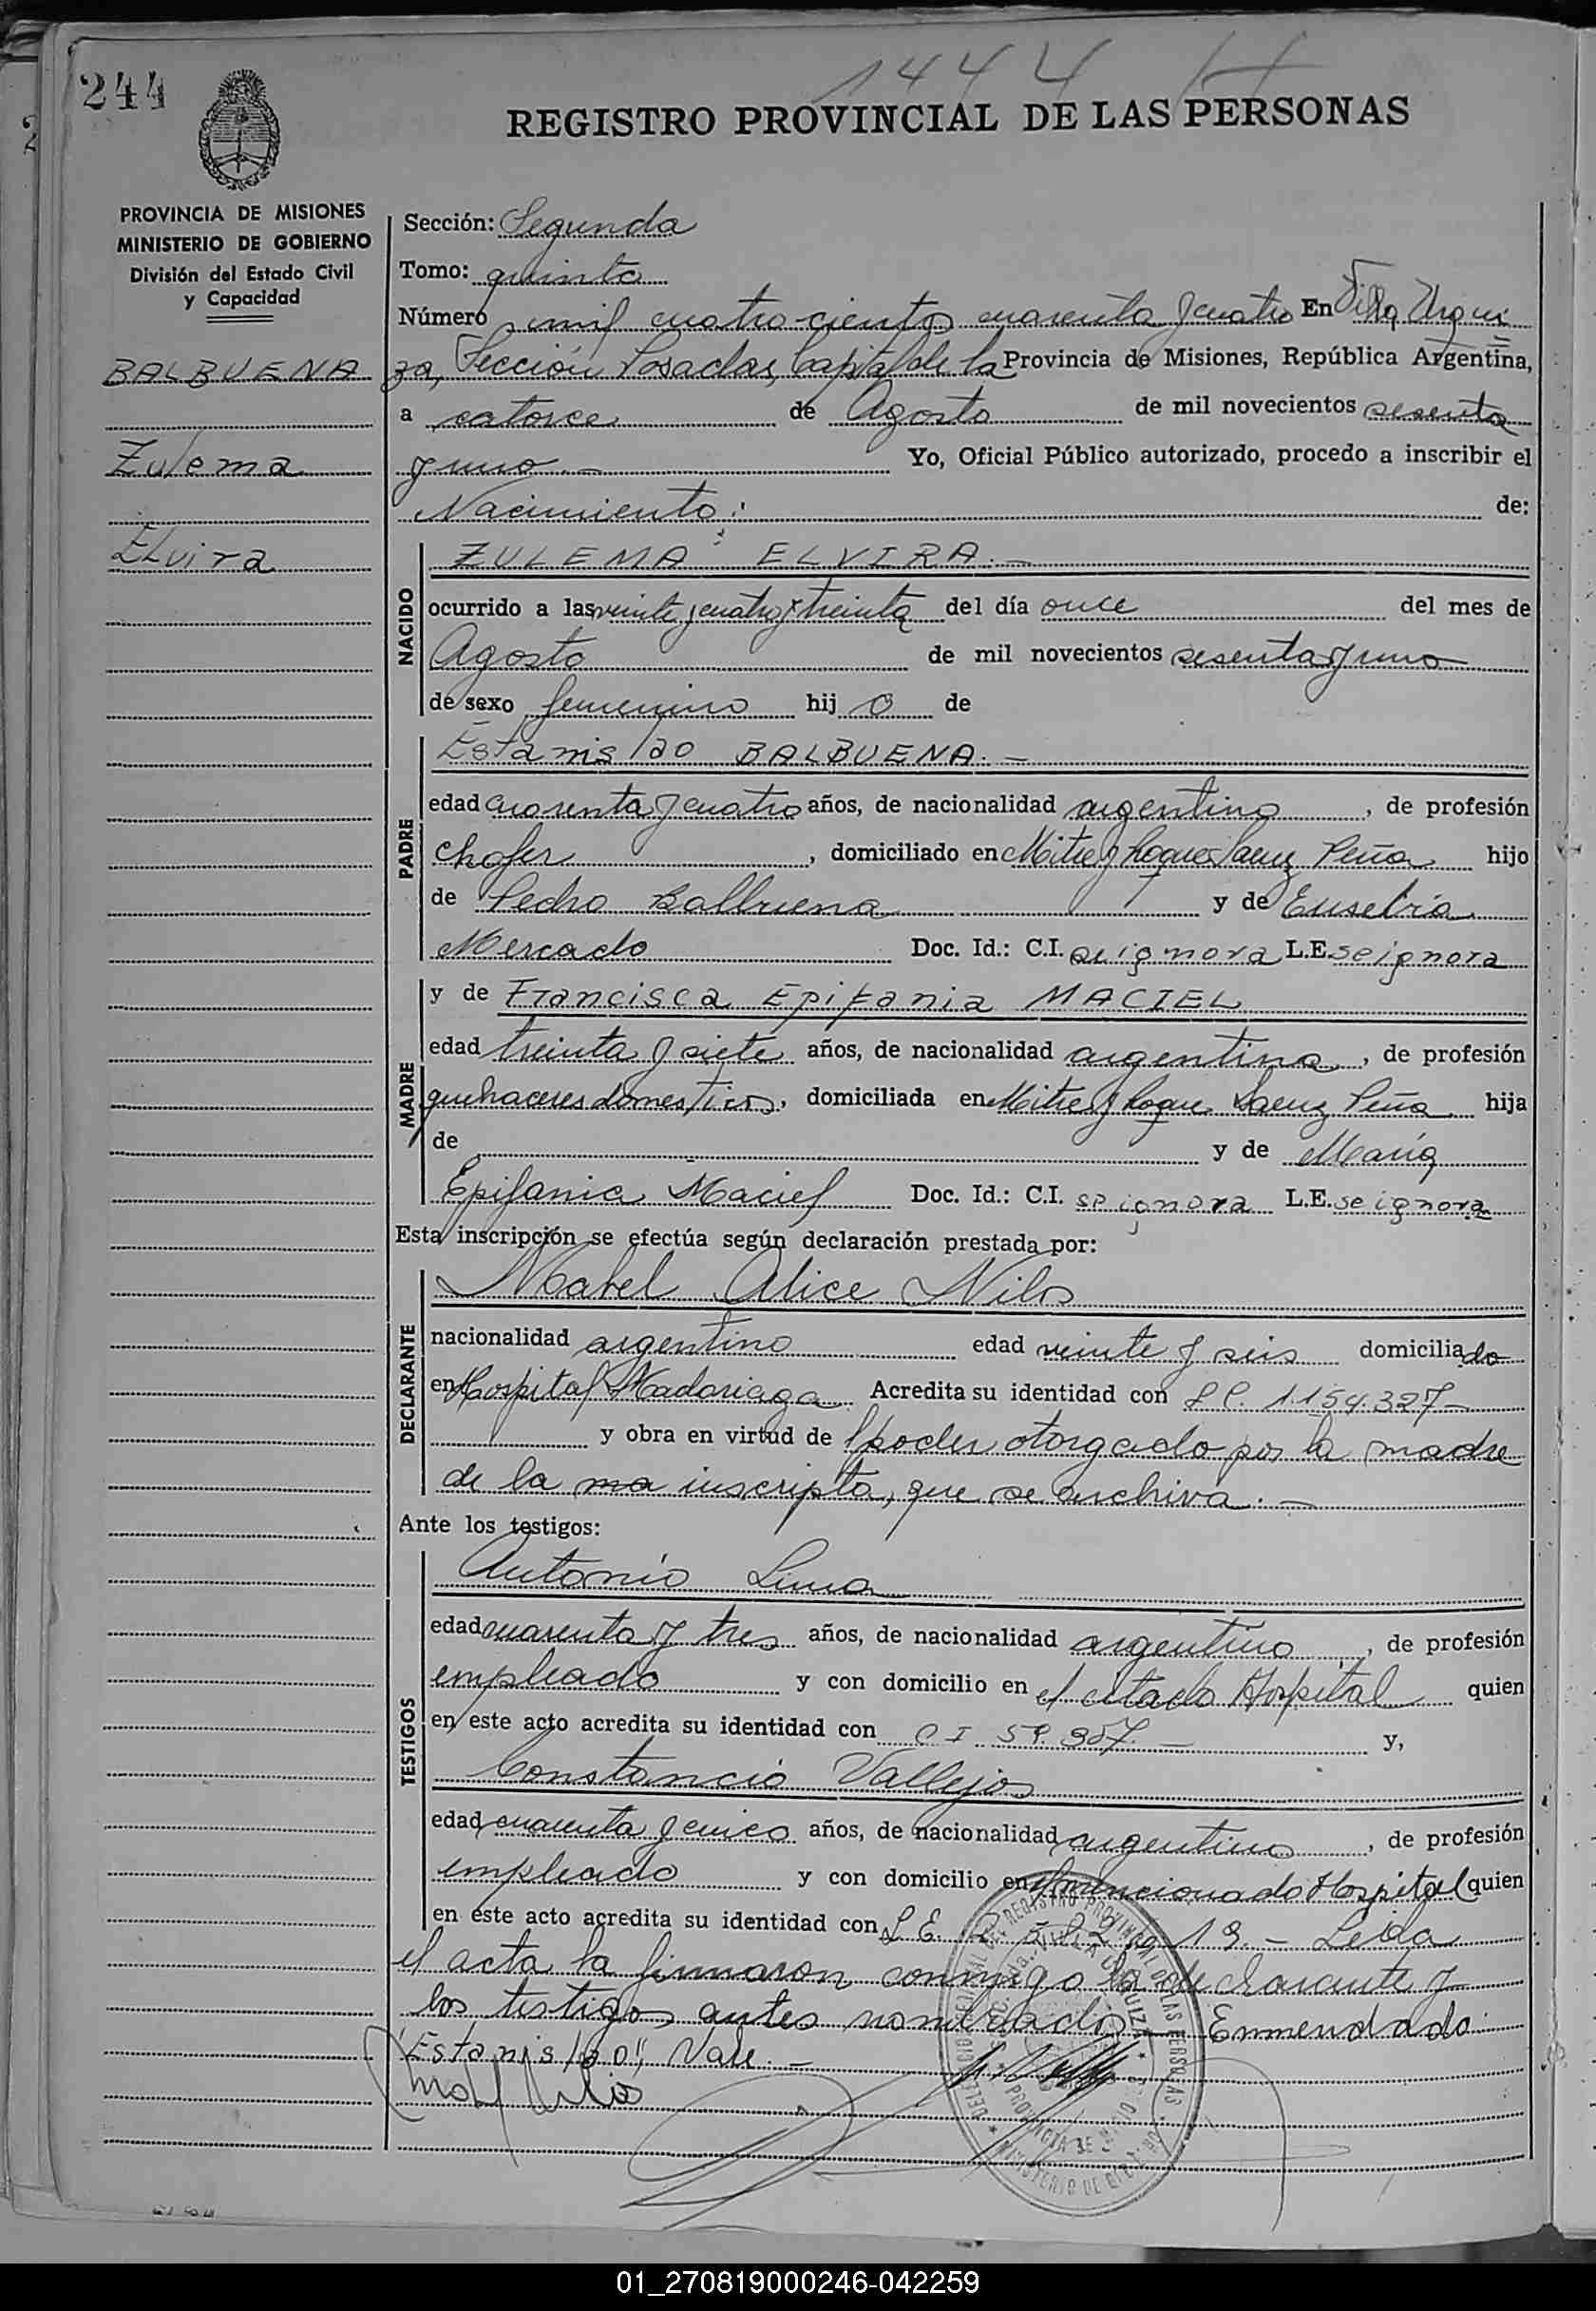 244
1444 H
REGISTRO PROVINCIAL DE LAS PERSONAS
PROVINCIA DE MISIONES
MINISTERIO DE GOBIERNO
División del Estado Civil
y Capacidad
BALBUENA
Zulema
Elvira
Sección: Segunda
Tomo: quinto
Número mil cuatrocientos cuarenta y cuatro En Villa Urqui
za, Sección Posadas, Capital de la Provincia de Misiones, República Argentina,
a catorce de Agosto de mil novecientos sesenta
y uno.- Yo, Oficial Público autorizado, procedo a inscribir el
Nacimiento: de:
NACIDO
ZULEMA ELVIRA.-
ocurrido a las veinte y cuatro y treinta del día once del mes de
Agosto de mil novecientos sesenta y uno
de sexo femenino hij o de
PADRE
Estanislao BALBUENA.-
edad cuarenta y cuatro años, de nacionalidad argentino, de profesión
chofer, domiciliado en Mitre y Roque Saenz Peña hijo
de Pedro Balbuena y de Eusebia
Mercado Doc. Id.: C.I. se ignora L.E. se ignora
MADRE
y de Francisca Epifania MACIEL
edad treinta y siete años, de nacionalidad argentina, de profesión
quehaceres domesticos, domiciliada en Mitre y Roque Saenz Peña hija
de y de María
Epifania Maciel Doc. Id.: C.I. se ignora L.E. se ignora
Esta inscripción se efectúa según declaración prestada por:
DECLARANTE
Mabel Alice Nilos
nacionalidad argentino edad veinte y seis domiciliado
en Hospital Madariaga Acredita su identidad con L C. 1.154.327-
y obra en virtud de poder otorgado por la madre
de la ma inscripta, que se archiva.-
Ante los testigos:
TESTIGOS
Antonio Luna
edad cuarenta y tres años, de nacionalidad argentino, de profesión
empleado y con domicilio en el citado Hospital quien
en este acto acredita su identidad con C I 59.357.- y,
Constancio Vallejos
edad cuarenta y cinco años, de nacionalidad argentino, de profesión
empleado y con domicilio en el mencionado Hospital quien
en este acto acredita su identidad con L E. 19.- Leída
el acta la firmaron conmigo la declarante y
los testigos antes nombrados.- Enmendado:
"Estanislao", Vale.-
01_270819000246-042259